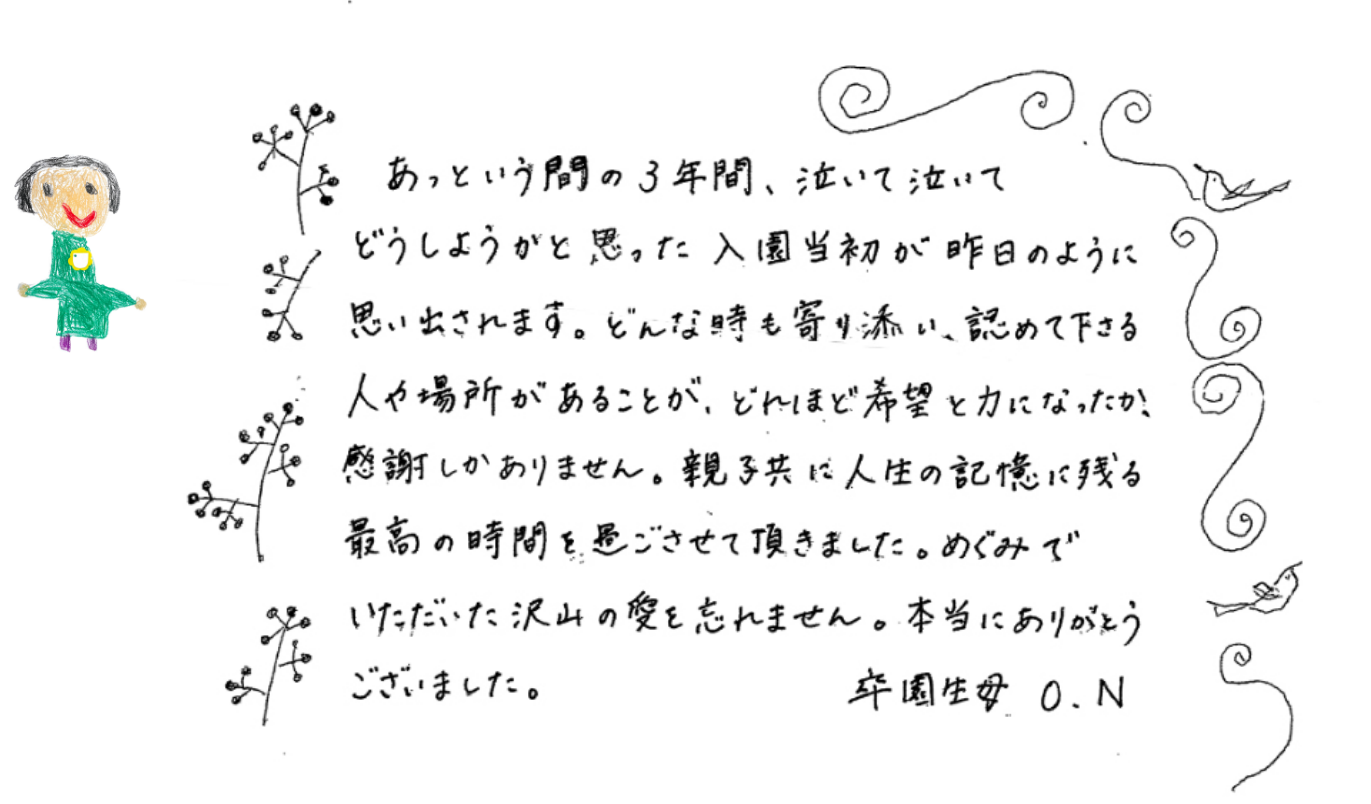 あっという間の3年間、泣いて泣いて
どうしようかと思った入園当初が昨日のように
思い出されます。どんな時も寄り添い、認めて下さる
人や場所があることが、どれほど希望と力になったか、
感謝しかありません。親子共に人生の記憶に残る
最高の時間を過ごさせて頂きました。めぐみで
いただいた沢山の愛を忘れません。本当にありがとう
ございました。
卒園生母 O.N